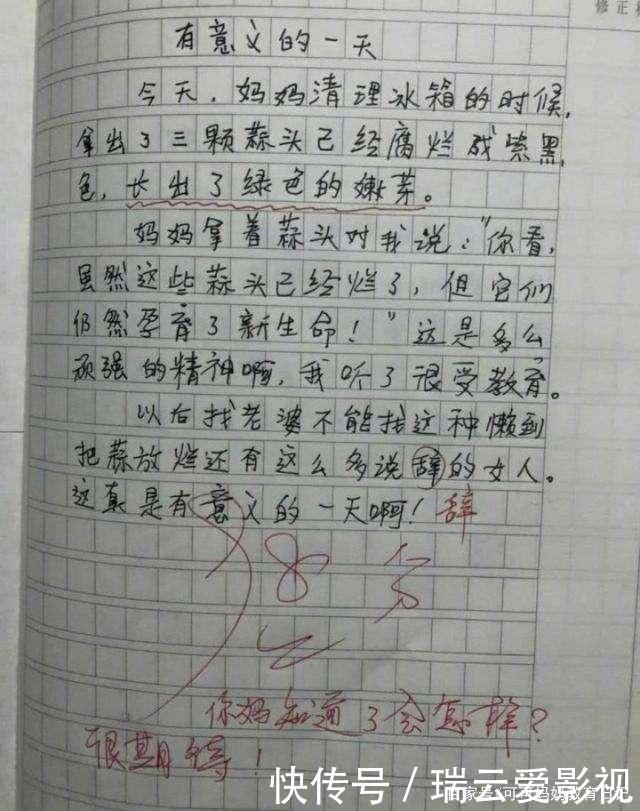 修正
有意义的一天
今天,妈妈清理冰箱的时候,
拿出了三颗蒜头已经腐烂成紫黑
色,长出了绿色的嫩芽。
妈妈拿着蒜头对我说:“你看,
虽然这些蒜头已经烂了,但它们
仍然孕育了新生命!”这是多么
顽强的精神啊,我听了很受教育。
以后找老婆不能找这种懒到
把蒜放烂还有这么多说辞的女人。
这真是有意义的一天啊!辞
28分
你妈知道了会怎样?
很期待!
快传号/瑞云爱影视